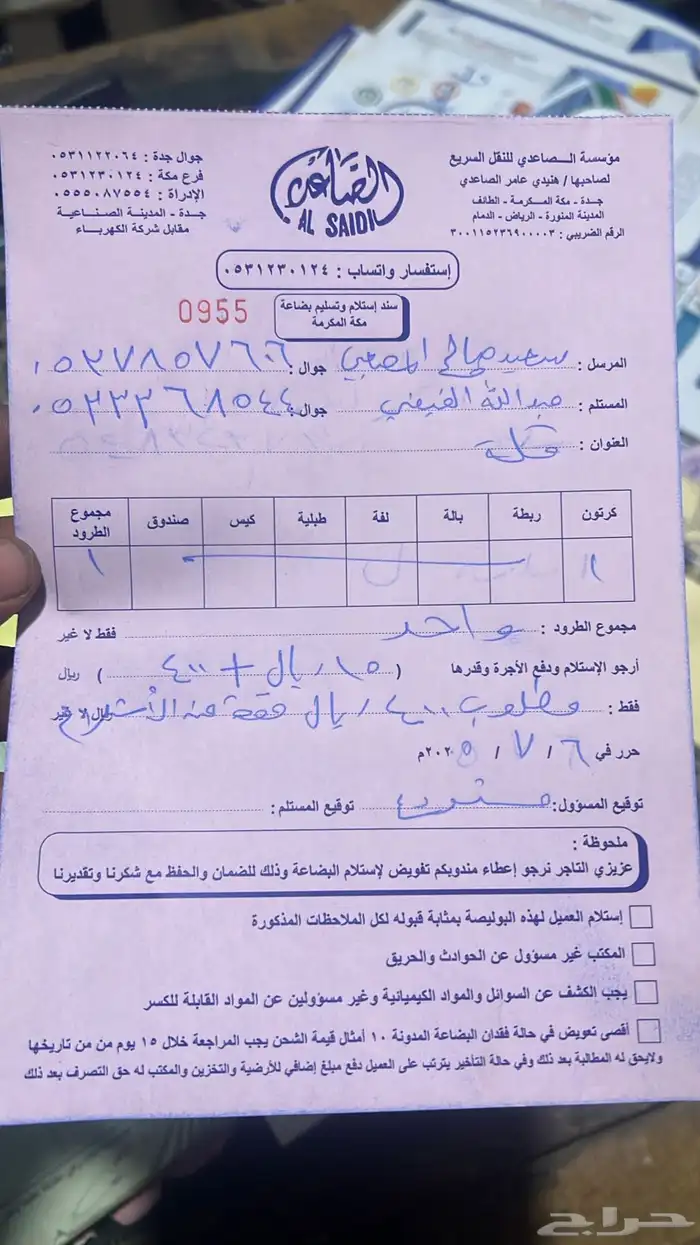 مؤسسة الصاعدي للنقل السريع
لصاحبها / هنيدي عامر الصاعدي
جدة - مكة المكرمة - الطائف
المدينة المنورة - الرياض - الدمام
الرقم الضريبي : ٣٠٠١١٥٢٣٦٩٠٠٠٠٣
الصاعدي
AL SAIDI
جوال جدة : ٠٥٣١١٢٢٠٦٤
فرع مكة : ٠٥٣١٢٣٠١٢٤
الإدراة : ٠٥٥٥٠٨٧٥٥٤
جدة - المدينة الصناعية
مقابل شركة الكهرباء
إستفسار واتساب : ٠٥٣١٢٣٠١٢٤
سند إستلام وتسليم بضاعة
مكة المكرمة
0955
المرسل : سعيد صالح المصعبي جوال : ٠٥٣٧٨٥٧٦٠٦
المستلم : عبدالله الفيفي جوال : ٠٥٣٣٣٦٨٥٤٤
العنوان : مكة
كرتون ربطة بالة لفة طبلية كيس صندوق مجموع الطرود
١ ١
مجموع الطرود : واحد فقط لا غير
أرجو الإستلام ودفع الأجرة وقدرها ( ١٥ ريال + ٤٠٠ ) ريال
فقط : مطلوب ٤٠٠ ريال ريال لا غير
حرر في ٦ / ٧ / ٢٠٢٥م
توقيع المسؤول : توقيع المستلم :
ملحوظة :
عزيزي التاجر نرجو إعطاء مندوبكم تفويض لإستلام البضاعة وذلك للضمان والحفظ مع شكرنا وتقديرنا
إستلام العميل لهذه البوليصة بمثابة قبوله لكل الملاحظات المذكورة
المكتب غير مسؤول عن الحوادث والحريق
يجب الكشف عن السوائل والمواد الكيميائية وغير مسؤولين عن المواد القابلة للكسر
أقصى تعويض في حالة فقدان البضاعة المدونة ١٠ أمثال قيمة الشحن يجب المراجعة خلال ١٥ يوم من من تاريخها
ولايحق له المطالبة بعد ذلك وفي حالة التأخير يترتب على العميل دفع مبلغ إضافي للأرضية والتخزين والمكتب له حق التصرف بعد ذلك
حراج